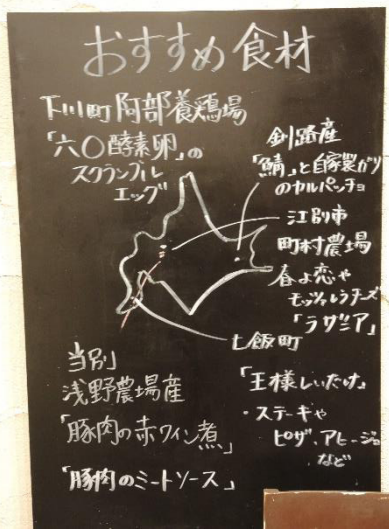 おすすめ食材
下川町 阿部養鶏場
「六〇酵素卵」の
スクランブル
エッグ
釧路産
「鯖」と自家製ガリ
のカルパッチョ
江別市
町村農場
春よ恋や
モッツァレラチーズ
「ラザニア」
七飯町
「王様しいたけ」
・ステーキや
ピザ、アヒージョ
など
当別
浅野農場産
「豚肉の赤ワイン煮」
「豚肉のミートソース」